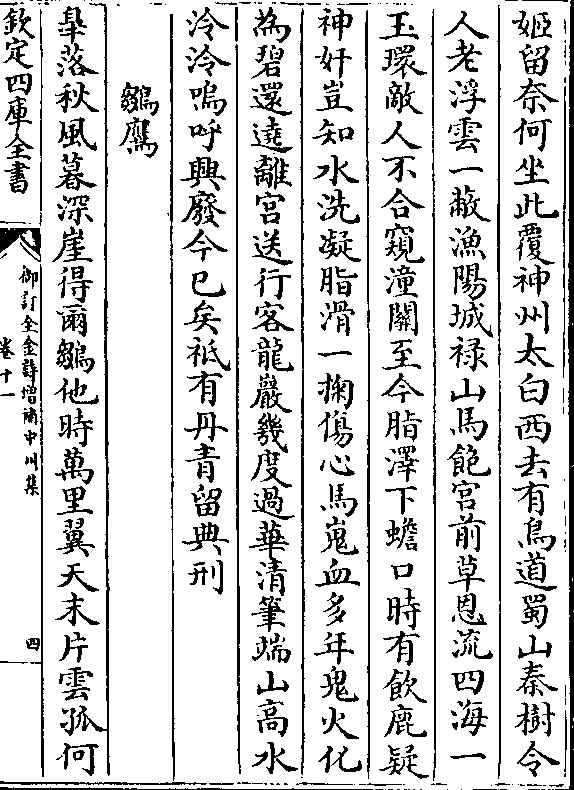 姬留奈何坐此覆神州太白西去有鳥道蜀山秦樹令
人老浮雲一蔽漁陽城祿山馬飽宮前草恩流四海一
玉環敵人不合窺潼關至今脂澤下蟾口時有飲鹿疑
神奸豈知水洗凝脂滑一掬傷心馬嵬血多年鬼火化
為碧還遶離宮送行客龍巖幾度過華清筆端山高水
泠泠嗚呼興廢今已矣祗有丹青留典刑
雛鷹
臯落秋風暮深崖得爾雛他時萬里翼天末片雲孤何
欽定四庫全書
御訂全金詩增補中州集
卷十一
四